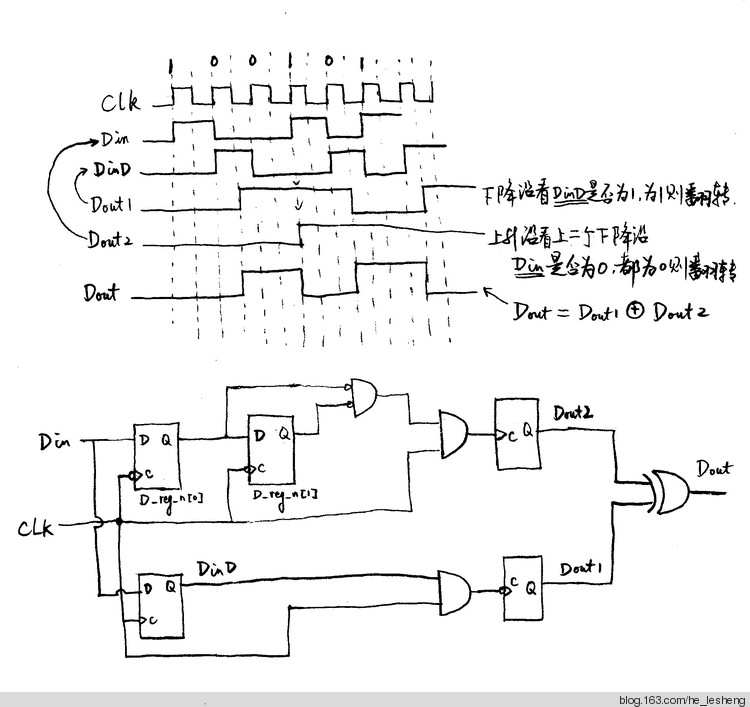 1 0 0 1 0 1
Clk
Din
DinD
Dout1
下降沿看DinD是否为1,为1则翻转.
Dout2
上升沿看上二个下降沿
Din是否为0,都为0则翻转
Dout
Dout = Dout1 ⊕ Dout2
Din
D Q
C
D_reg_n[0]
D Q
C
D_reg_n[1]
C Q
Dout2
Dout
CLK
DinD
D Q
C
C Q
Dout1
blog.163.com/he_lesheng